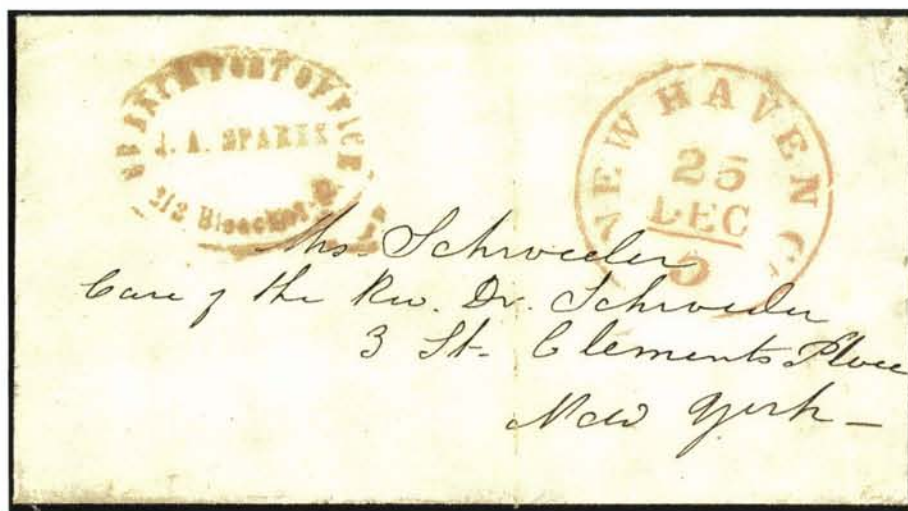 BRANCH POST OFFICE
J. A. SPARKS
212 Bleecker-S
NEW HAVEN Ct.
25
DEC
5
Mrs. Schroeder
Care of the Rev. Dr. Schroeder
3 St. Clements Place
New York —